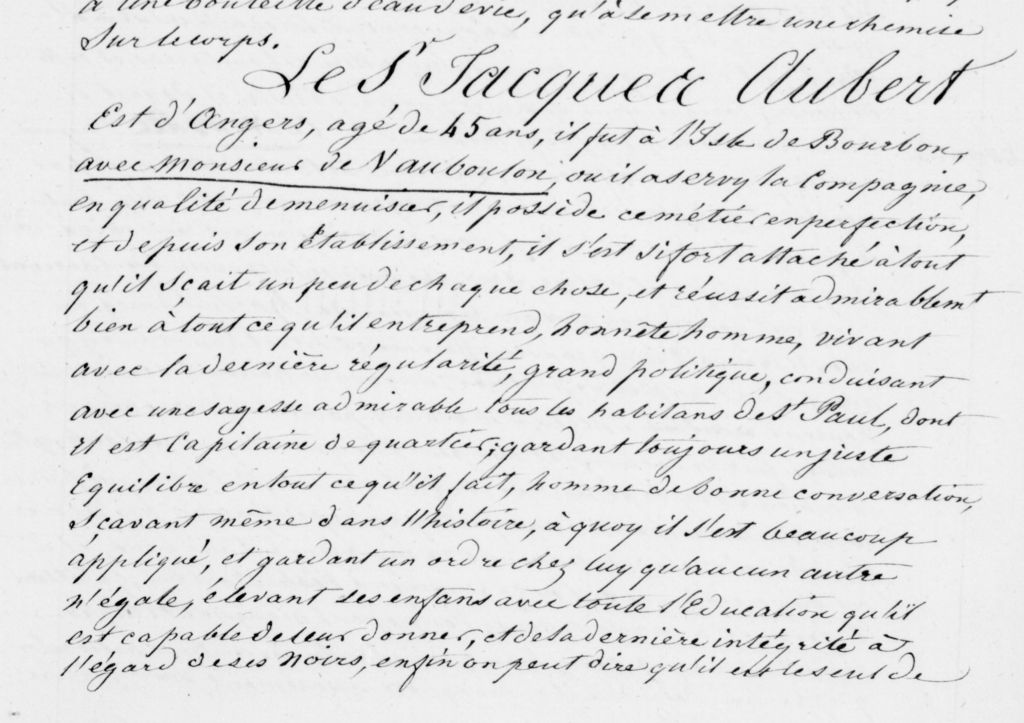 à une bouteille d'eau de vie, qu'à se mettre une chemise
Sur le corps.
Le Sr Jacques Aubert
Est d'Angers, agé de 45 ans, il fut à l'Isle de Bourbon,
avec Monsieur de Vauboulon, ou il a servy la Compagnie,
en qualité de menuisier, il possède ce métier en perfection,
et depuis son Etablissement, il s'est si fort attaché à tout
qu'il scait un peu de chaque chose, et réussit admirablemt
bien à tout ce qu'il entreprend, honnête homme, vivant
avec la dernière régularité, grand politique, conduisant
avec une sagesse admirable tous les habitans de St Paul, dont
il est Capitaine de quartier; gardant toujours un juste
Equilibre en tout ce qu'il fait, homme de bonne conversation,
Scavant même dans l'histoire, à quoy il s'est beaucoup
appliqué, et gardant un ordre chez luy qu'aucun autre
n'égale, élevant ses enfans avec toute l'Education qu'il
est capable de leur donner, et de la dernière intégrité à
l'égard de ses Noirs, enfin on peut dire qu'il est le seul de